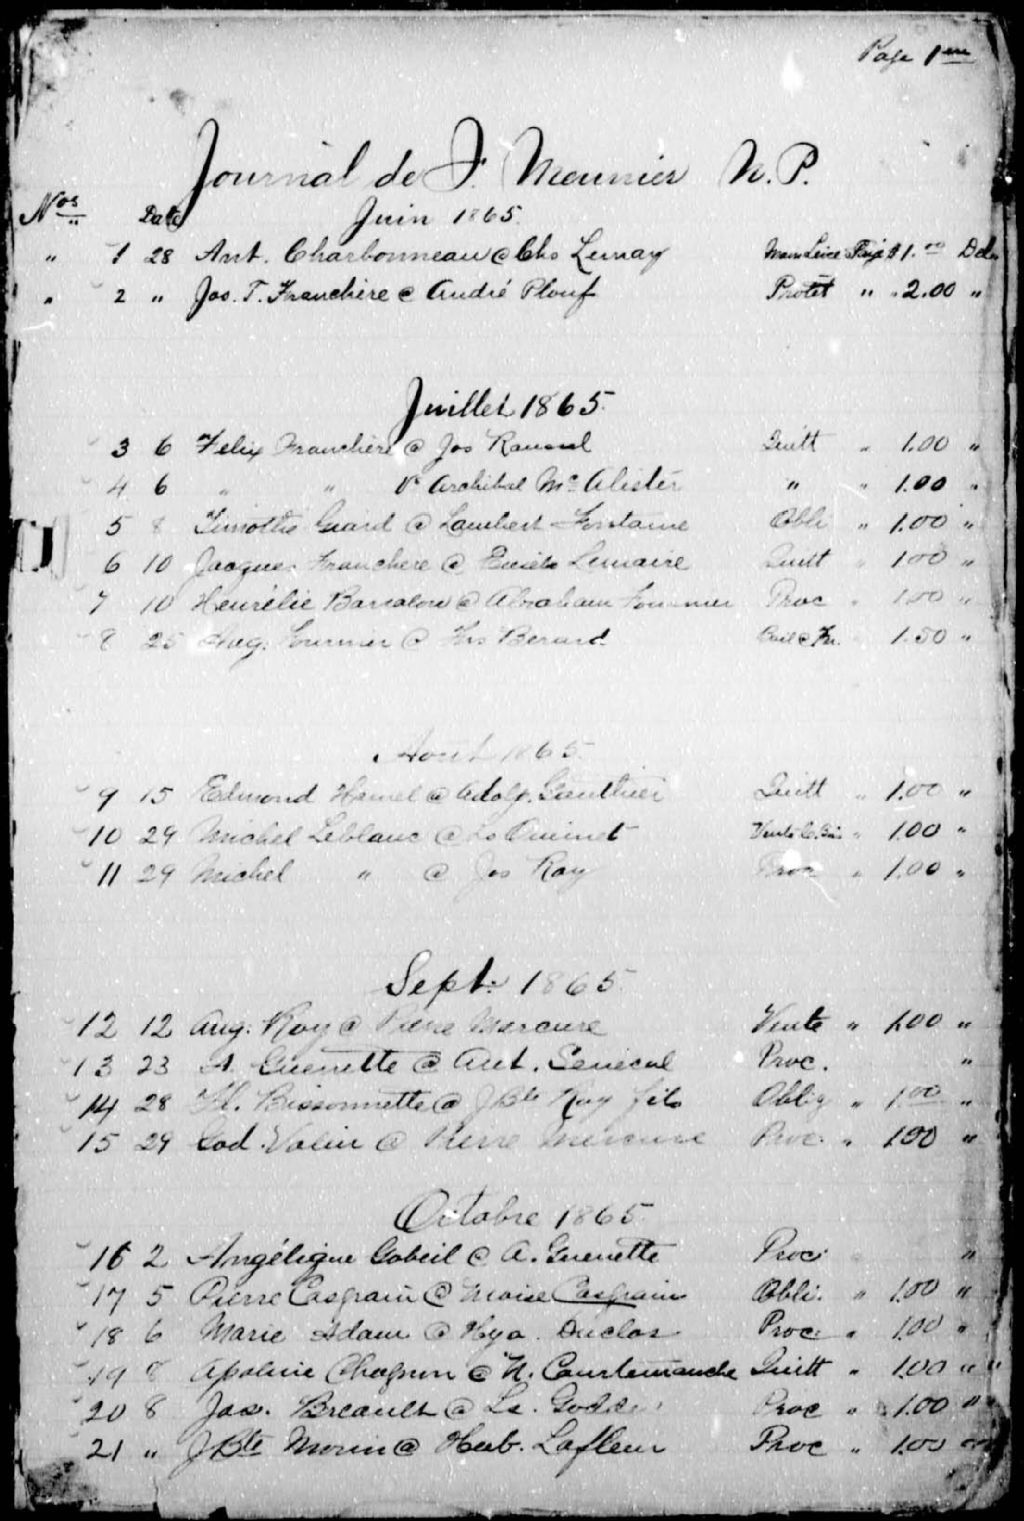 Page 1ère
Journal de J. Meunier N.P.
Nos Date Juin 1865
" 1 28 Ant. Charbonneau @ Chs Lemay $1.00
" 2 " Jos. T. Franchère @ André Plouf Protêt " " 2.00 "
Juillet 1865
3 6 Felix Franchère @ Jos Quitt " 1.00 "
4 6 " " Archibal McAlister " " 1.00 "
5 8 Timothé Guard @ Lambert Fontaine Obli " 1.00 "
6 10 Jacques Franchere @ Lemaire Quitt " 1.00 "
7 10 @ Abraham Fournier Proc " 1.00 "
8 25 Aug. Fournier @ Frs Berard 1.50 "
Aout 1865
9 15 Edmond Hamel @ Adolp. Gauthier Quitt " 1.00 "
10 29 Michel Leblanc @ Ls Ouimet Vente " 1.00 "
11 29 Michel " @ Jos Roy Proc " 1.00 "
Sept. 1865
12 12 Aug. Roy @ Pierre Mercure Vente " 1.00 "
13 23 A. Guenette @ Ant. Senécal Proc. "
14 28 Bissonnette @ JBte Roy fils Oblig " 1.00 "
15 29 God. Valin @ Pierre Mercure Proc. " 1.00 "
Octobre 1865
16 2 Angélique Gobeil @ A. Guenette Proc. "
17 5 Pierre Casgrain @ Moise Casgrain Obli. " 1.00 "
18 6 Marie Adam @ Hya. Duclos Proc. " 1.00 "
19 8 Apoline Chagnon @ N. Courtemanche Quitt " 1.00 " "
20 8 Jos. Breault @ Ls. Proc " 1.00 " "
21 " JBte Morin @ Hub. Lafleur Proc " 1.00